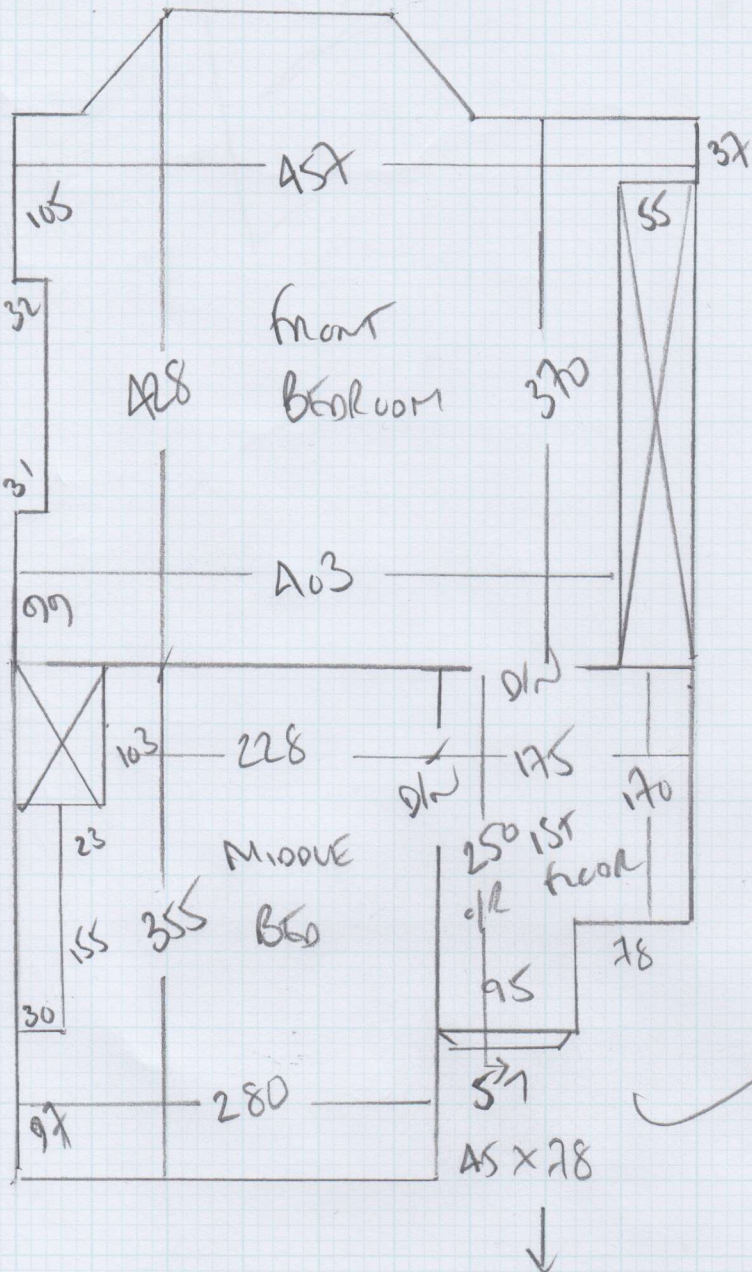 457
37
105
55
32
FRONT
BEDROOM
428
370
31
403
99
D/W
103
228
175
170
D/W
23
MIDDLE
250 1ST
FLOOR
155
355
BED
78
95
30
280
97
45 X 78